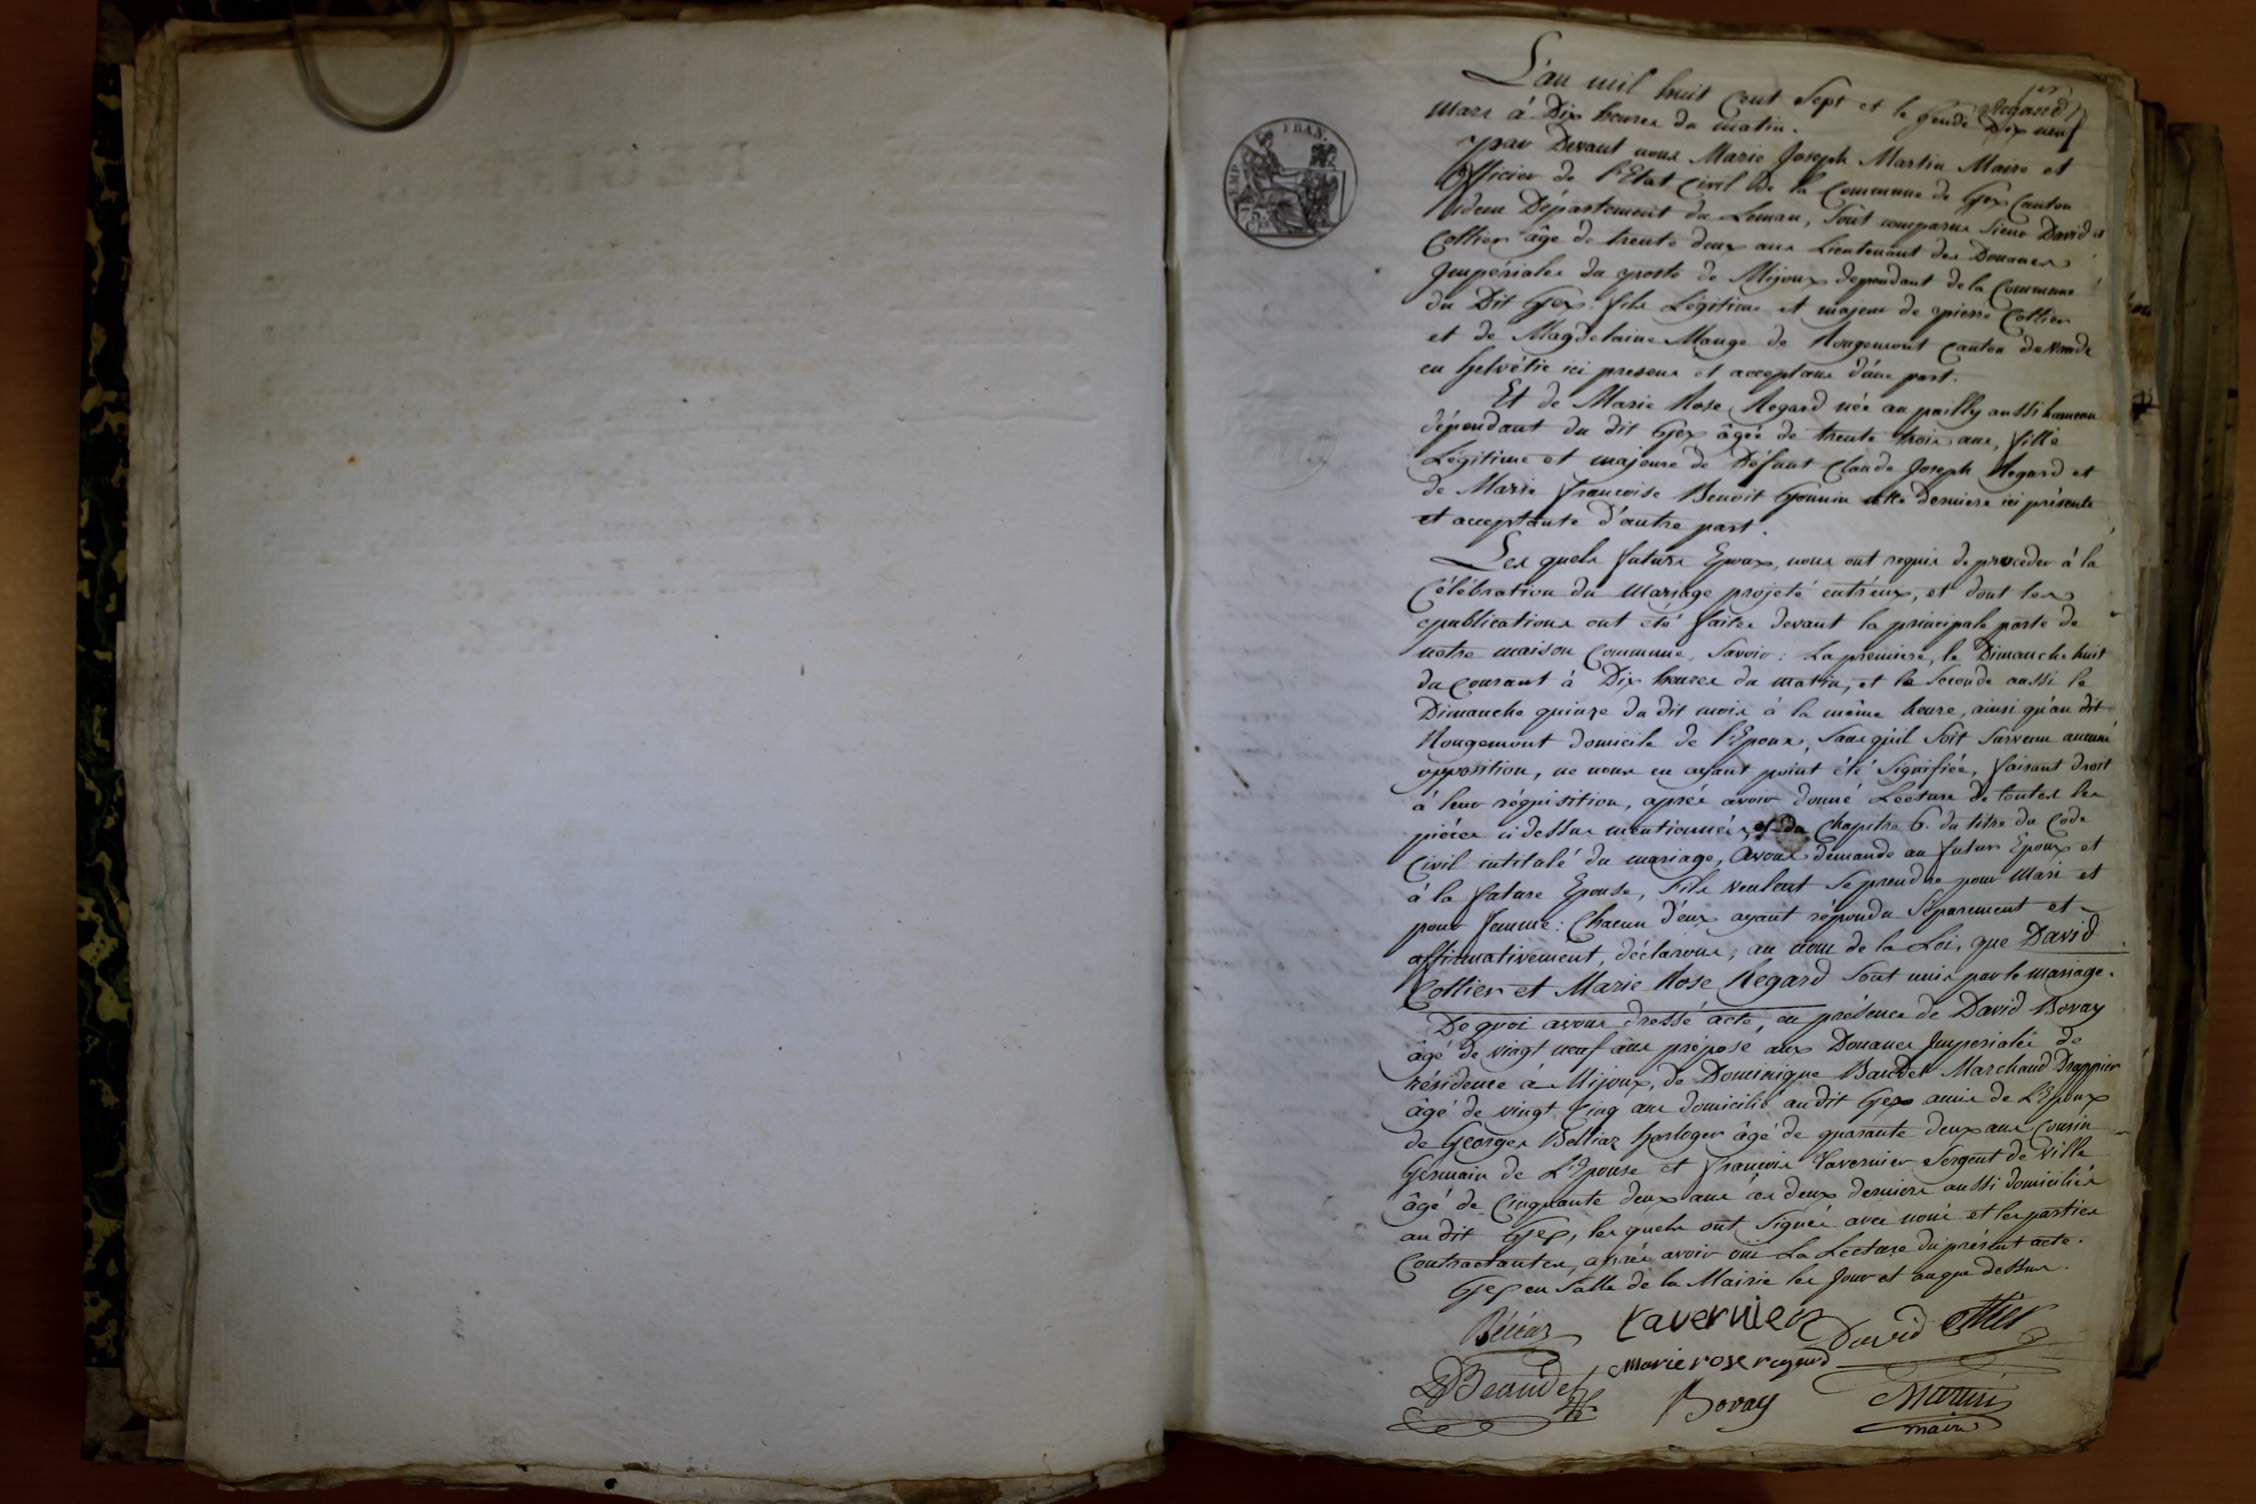 1er
Regard
L'an mil huit Cent Sept et le Jeudi Dix neuf
Mars à Dix heures du matin.
par Devant nous Marie Joseph Martin Maire et
Officier de l'Etat Civil de la Commune de Gex Canton
idem Département du Leman, Sont comparus Sieur David
Cottier âge de trente deux ans Lieutenant des Douanes
Impériales du poste de Mijoux dependant de la Commune
du Dit Gex. fils Légitime et majeur de pierre Cottier
et de Magdelaine Mange de Rougemont Canton de Vaude
en helvétie ici present et acceptant d'une part.
Et de Marie Rose Regard née au pailly aussi hameau
dépendant du dit Gex âgée de trente trois ans, fille
Légitime et majeure de Défunt Claude Joseph Regard et
de Marie françoise Benoit Gonnin cette derniere ici présente
et acceptante d'autre part.
Les quels futurs Epoux, nous ont requis de proceder à la
Célébration du Mariage projeté entr'eux, et dont les
publications ont été faites devant la principale porte de
notre maison Commune, Savoir : La premiere, le Dimanche huit
du Courant à Dix heures du matin, et la Seconde aussi le
Dimanche quinze du dit mois à la même heure, ainsi qu'au dit
Rougemont domicile de l'Epoux, Sans qu'il Soit Survenu aucune
opposition, ne nous en ayant point été Signifiée, faisant droit
à leur réquisition, après avoir donné Lecture de toutes les
pièces ci dessus mentionnées, et du Chapitre 6. du titre du Code
Civil intitulé du mariage, Avons demandé au futur Epoux et
à la future Epouse, S'ils veulent Se prendre pour Mari et
pour femme : Chacun d'eux ayant répondu Séparement et
affirmativement, déclarons, au nom de la Loi, que David
Cottier et Marie Rose Regard Sont unis par le mariage.
De quoi avons dressé acte, en présence de David Bovay
âgé de vingt neuf ans préposé aux Douanes Imperiales de
résidence à Mijoux, de Dominique Baudet Marchand Drappier
âgé de vingt Cinq ans domicilié audit Gex amis de L'Epoux
de Georges Belliaz horloger âgé de quarante deux ans Cousin
Germain de L'Epouse et françois Tavernier Sergent de Ville
âgé de Cinquante deux ans ces deux derniers aussi domiciliés
au dit Gex, les quels ont Signés avec nous et les parties
Contractantes, après avoir oui La Lecture du présent acte.
Gex en Salle de la Mairie les Jour et an que dessus.
tavernier David Cottier
Marie rose regard
D Beaudet Bovay Martin
maire
EMP. FRAN.